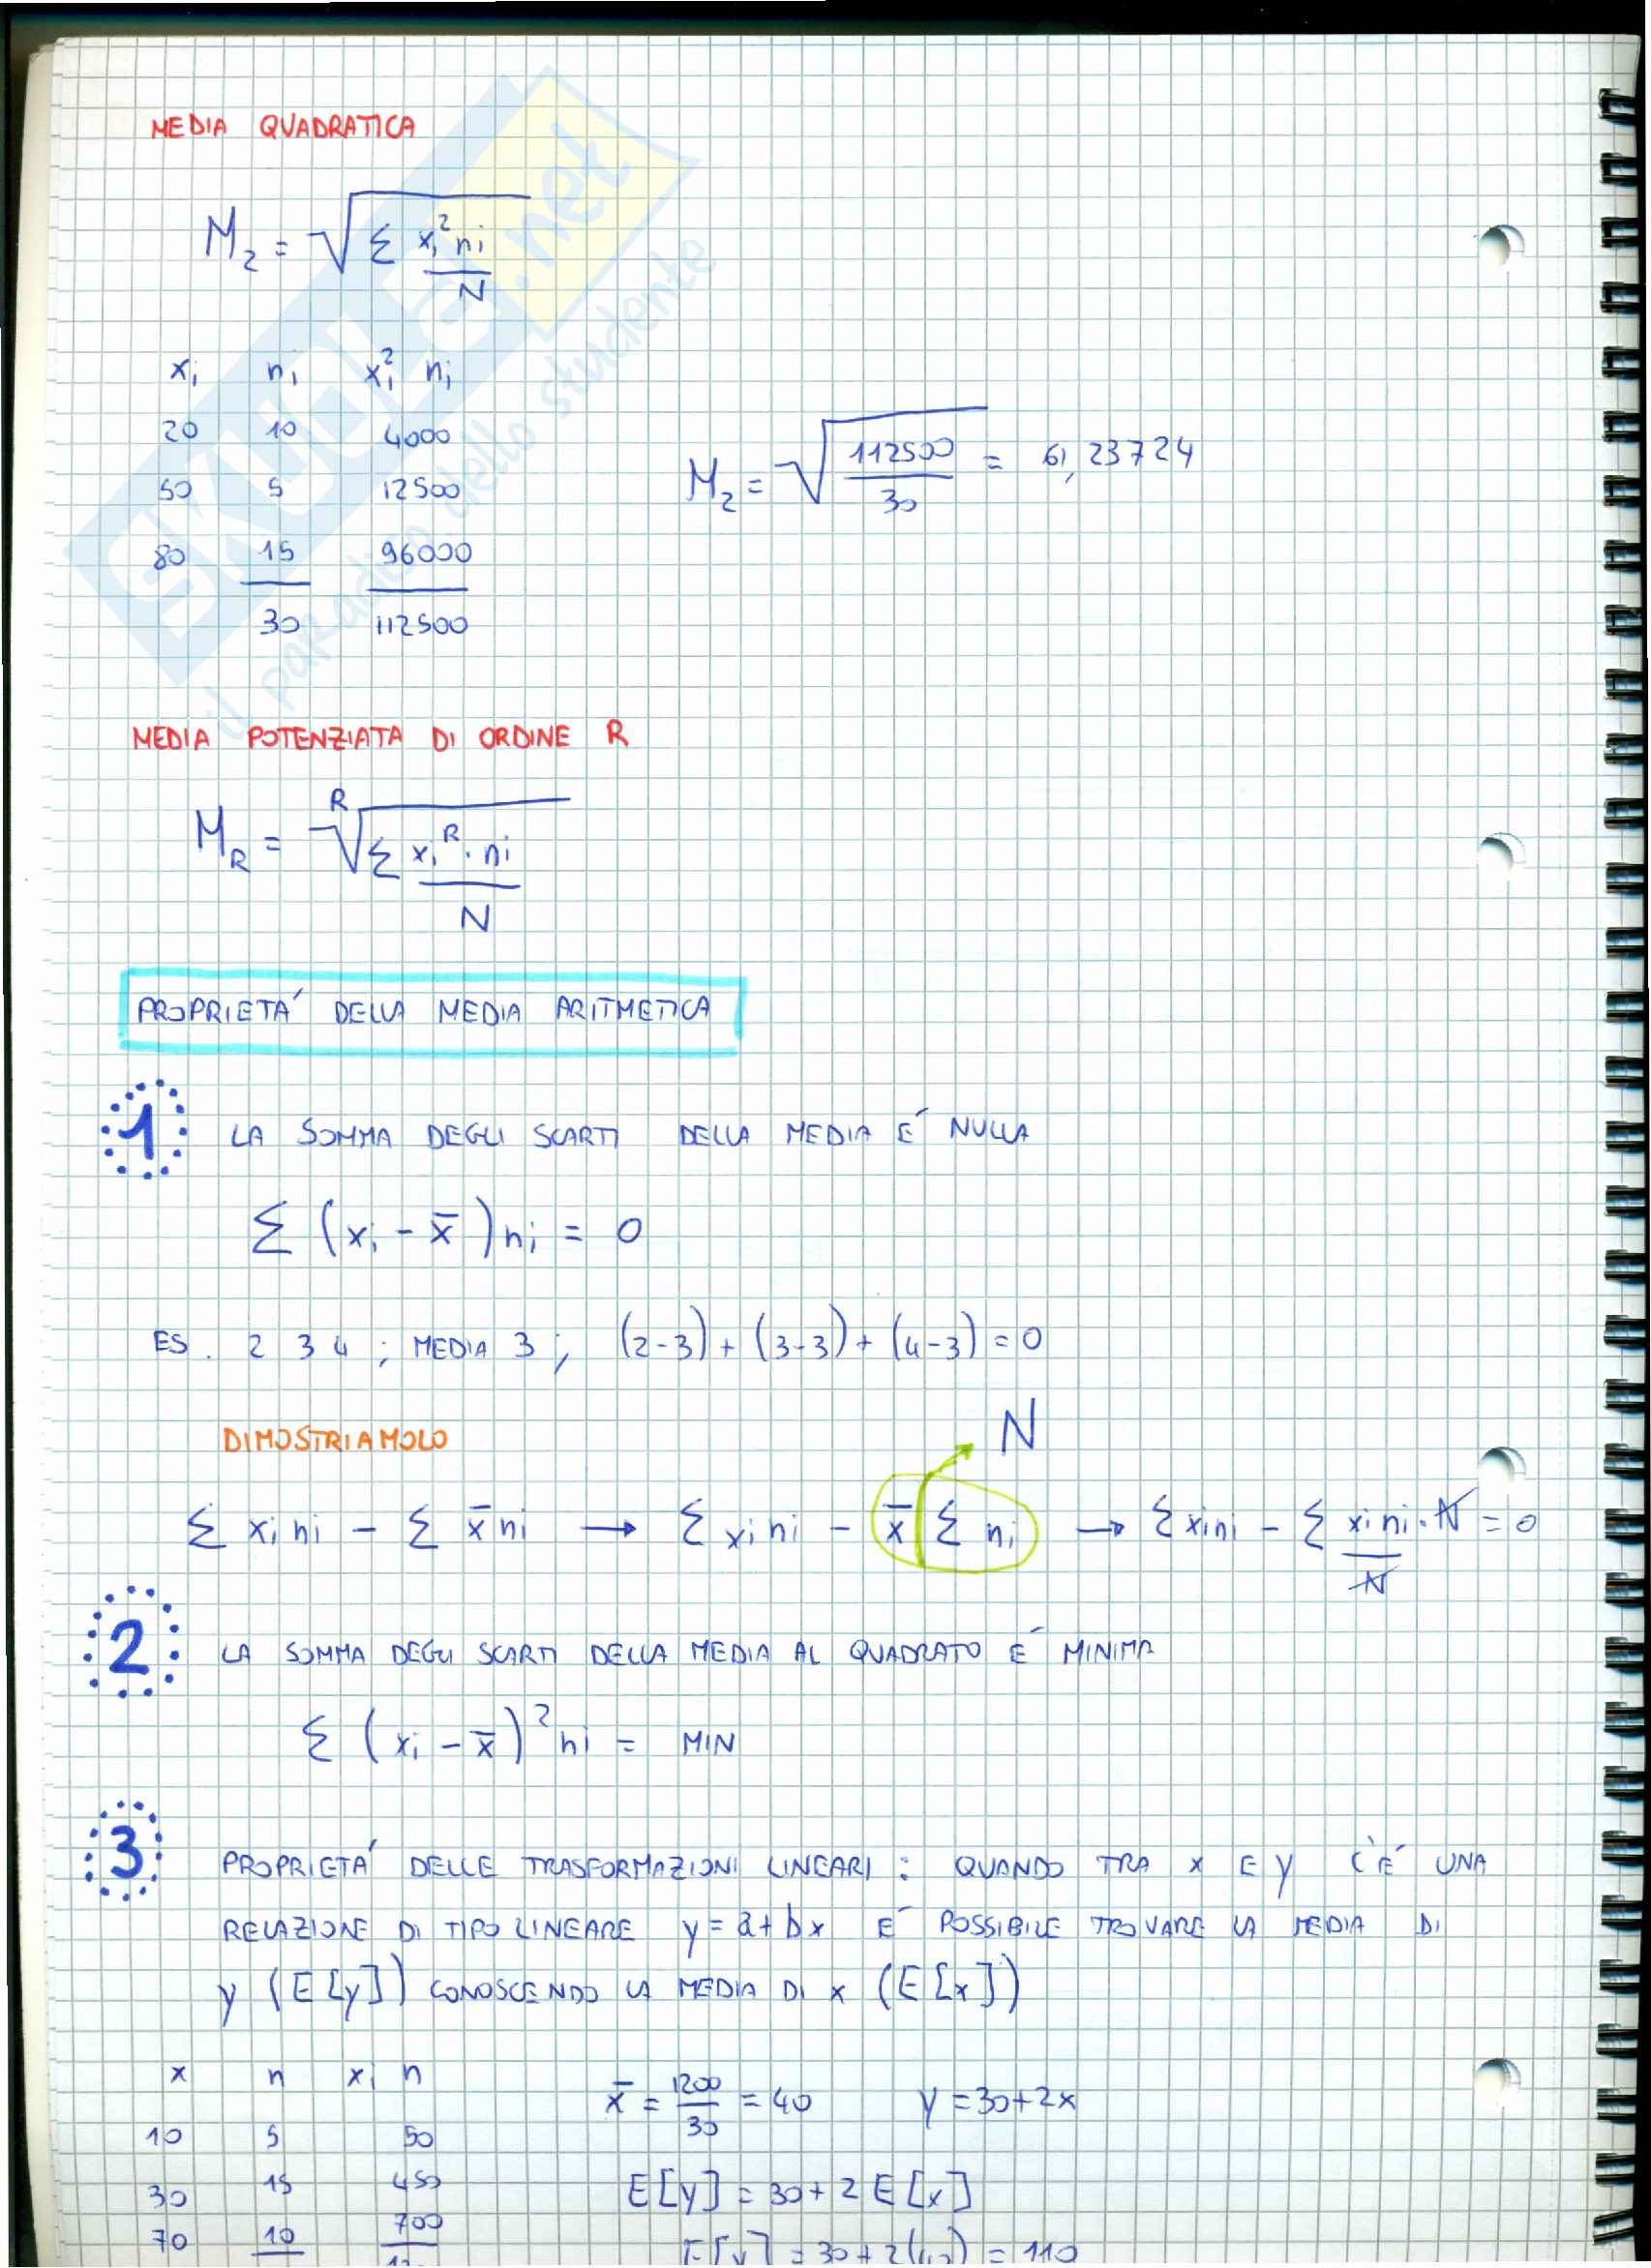 MEDIA QUADRATICA
M₂ = √(Σ xᵢ² nᵢ / N)
xᵢ nᵢ xᵢ² nᵢ
20 10 4000
50 5 12500
80 15 96000
30 112500
M₂ = √(112500 / 30) = 61,23724
MEDIA POTENZIATA DI ORDINE R
M_R = ᴿ√(Σ xᵢᴿ · nᵢ / N)
PROPRIETÁ DELLA MEDIA ARITMETICA
1 LA SOMMA DEGLI SCARTI DELLA MEDIA É NULLA
Σ (xᵢ - x̄) nᵢ = 0
ES. 2 3 4 ; MEDIA 3 ; (2-3) + (3-3) + (4-3) = 0
DIMOSTRIAMOLO
N
Σ xᵢ nᵢ - Σ x̄ nᵢ → Σ xᵢ nᵢ - x̄ Σ nᵢ → Σ xᵢ nᵢ - Σ xᵢ nᵢ / N · N = 0
2 LA SOMMA DEGLI SCARTI DELLA MEDIA AL QUADRATO É MINIMA
Σ (xᵢ - x̄)² nᵢ = MIN
3 PROPRIETÁ DELLE TRASFORMAZIONI LINEARI : QUANDO TRA x E y C'É UNA
RELAZIONE DI TIPO LINEARE y = a + bx É POSSIBILE TROVARE LA MEDIA DI
y (E[y]) CONOSCENDO LA MEDIA DI x (E[x])
x n xᵢ n
10 5 50
30 15 450
70 10 700
x̄ = 1200 / 30 = 40 y = 30+2x
E[y] = 30 + 2 E[x]
E[y] = 30 + 2(40) = 110
SKUOLA.net
il paradiso dello studente